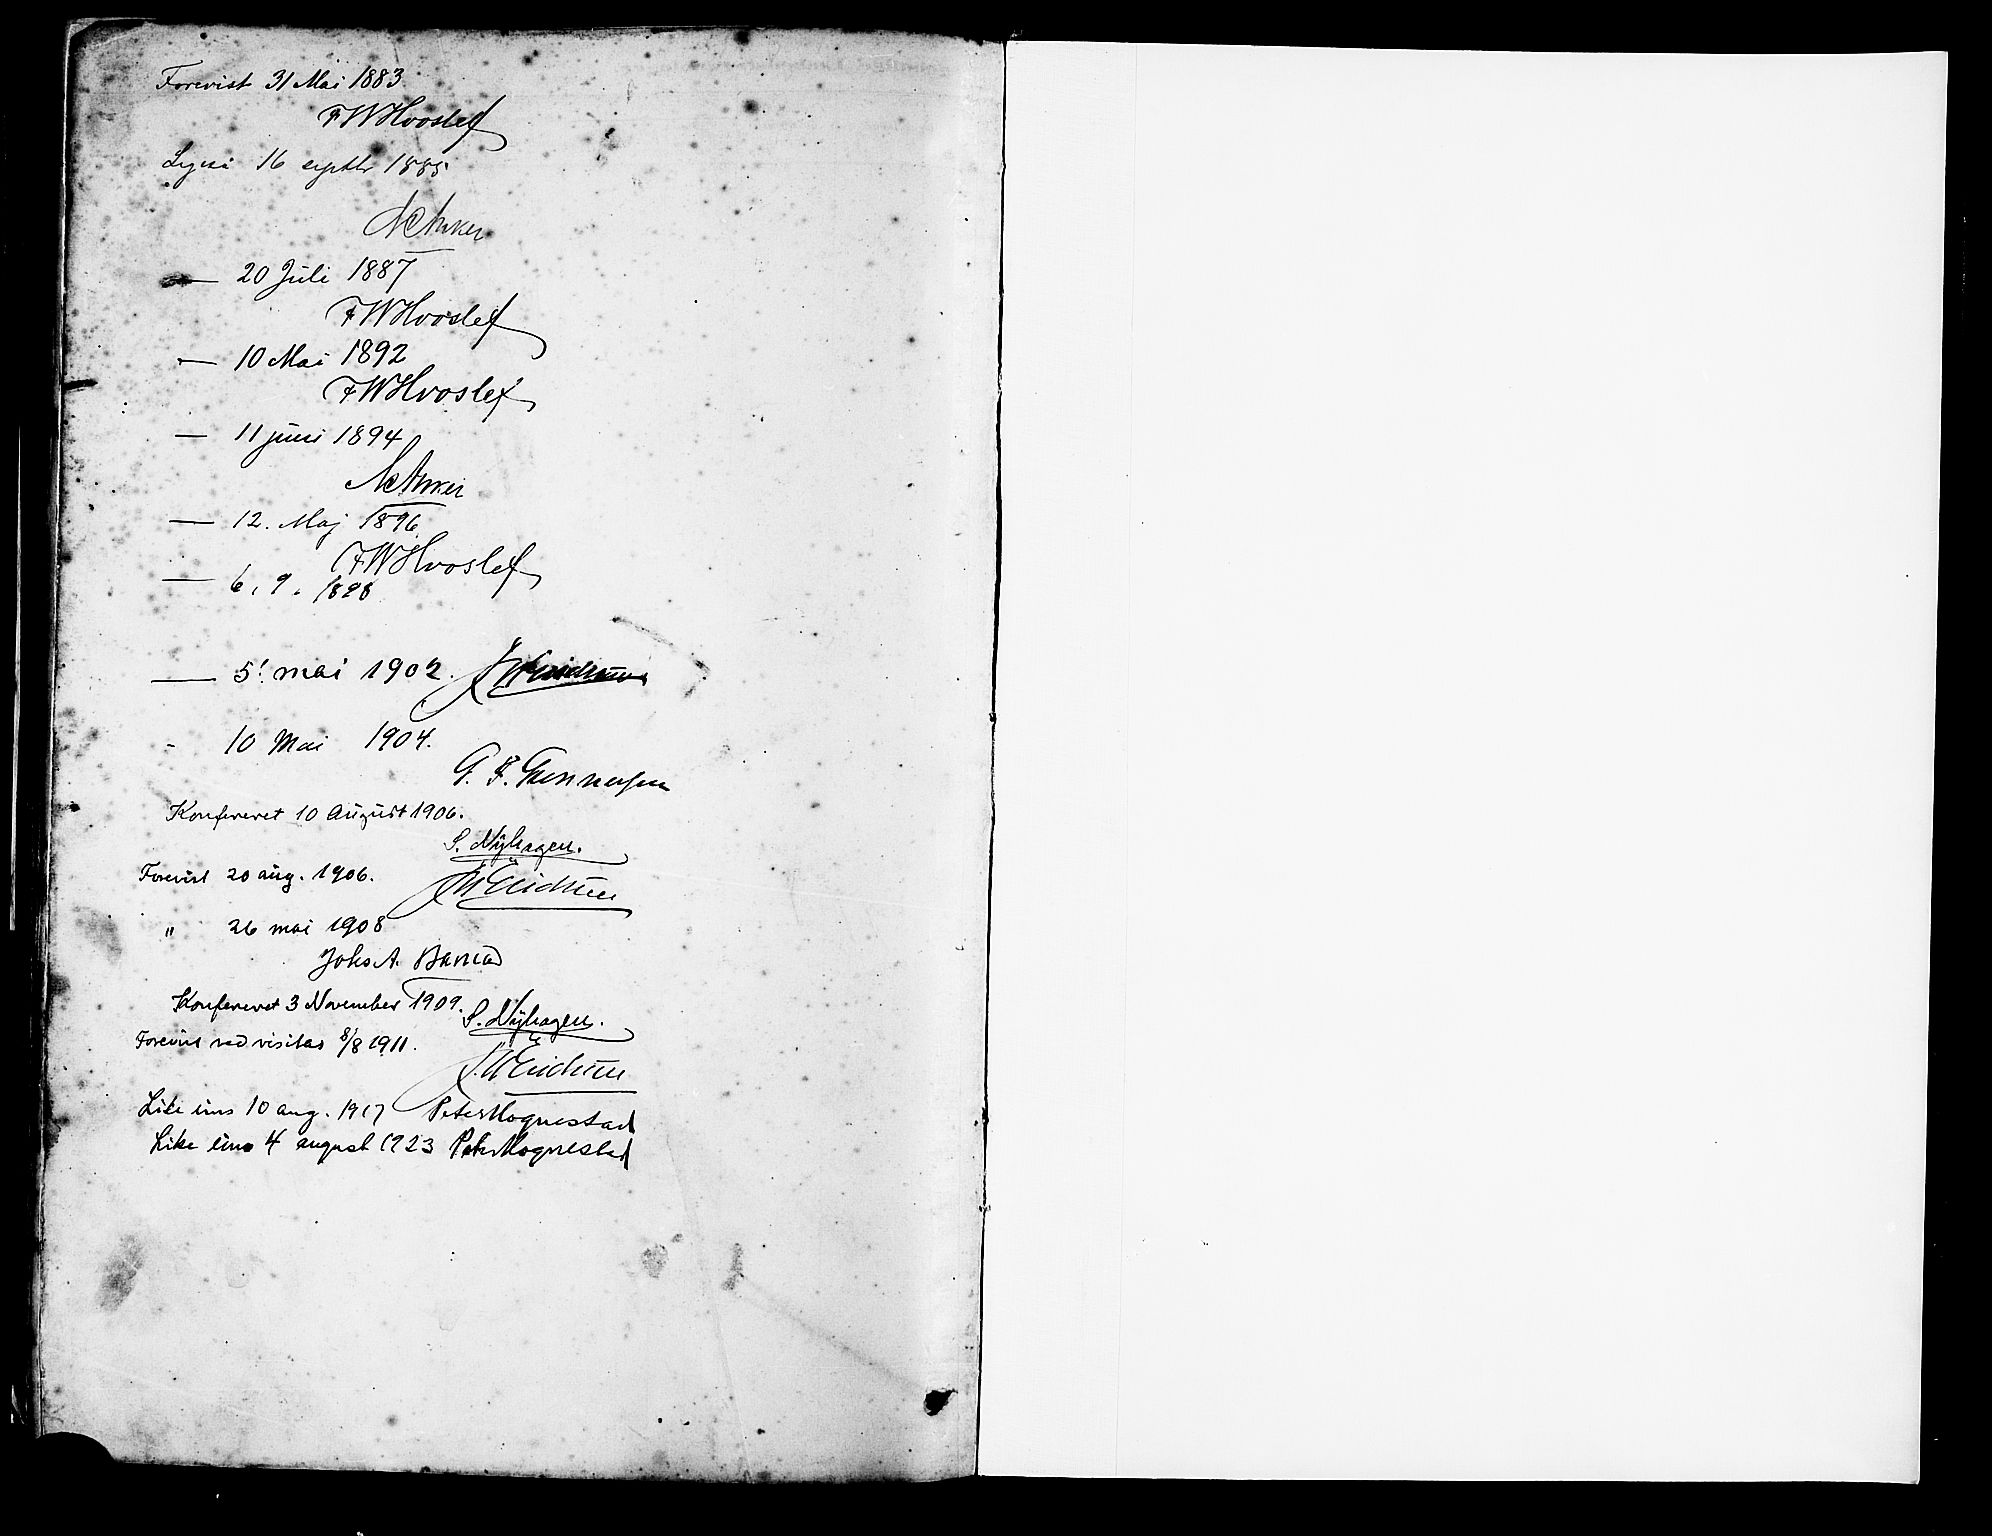 Forevist 31 Mai 1883
FWHvoslef
16 septbr 1885
NCAnker
— 20 Juli 1887
FWHvoslef
— 10 Mai 1892
FWHvoslef
— 11 juni 1894
NCAnker
— 12. Maj 1896
FWHvoslef
— 6. 9. 1898
— 5! mai 1902.
- 10 Mai 1904.
G. F. Gunnersen
Konfereret 10 August 1906.
S. Nÿhagen.
Forevist 20 aug. 1906.
" 26 mai 1908
Johs A.
Konfereret 3 November 1909. S. Nÿhagen.
Forevist ved visitas 8/8 1911.
Like eins 10 aug. 1917 Peter Hognestad
Like eins 4 august 1923 Peter Hognestad